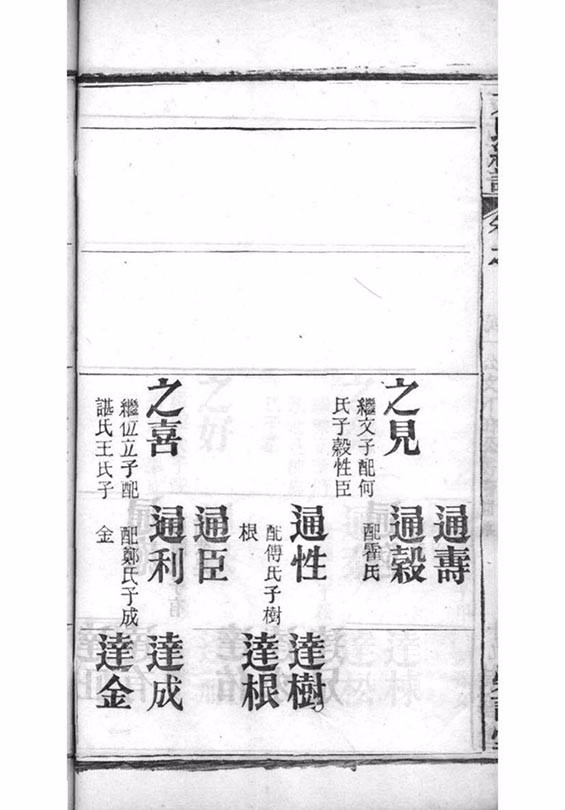 之見
繼文子配何
氏子穀性臣
通壽
通穀
配霍氏
通性
配傅氏子樹
根
達樹
達根
通臣
之喜
繼位立子配
諶氏王氏子
通利
配鄭氏子成
金
達成
達金